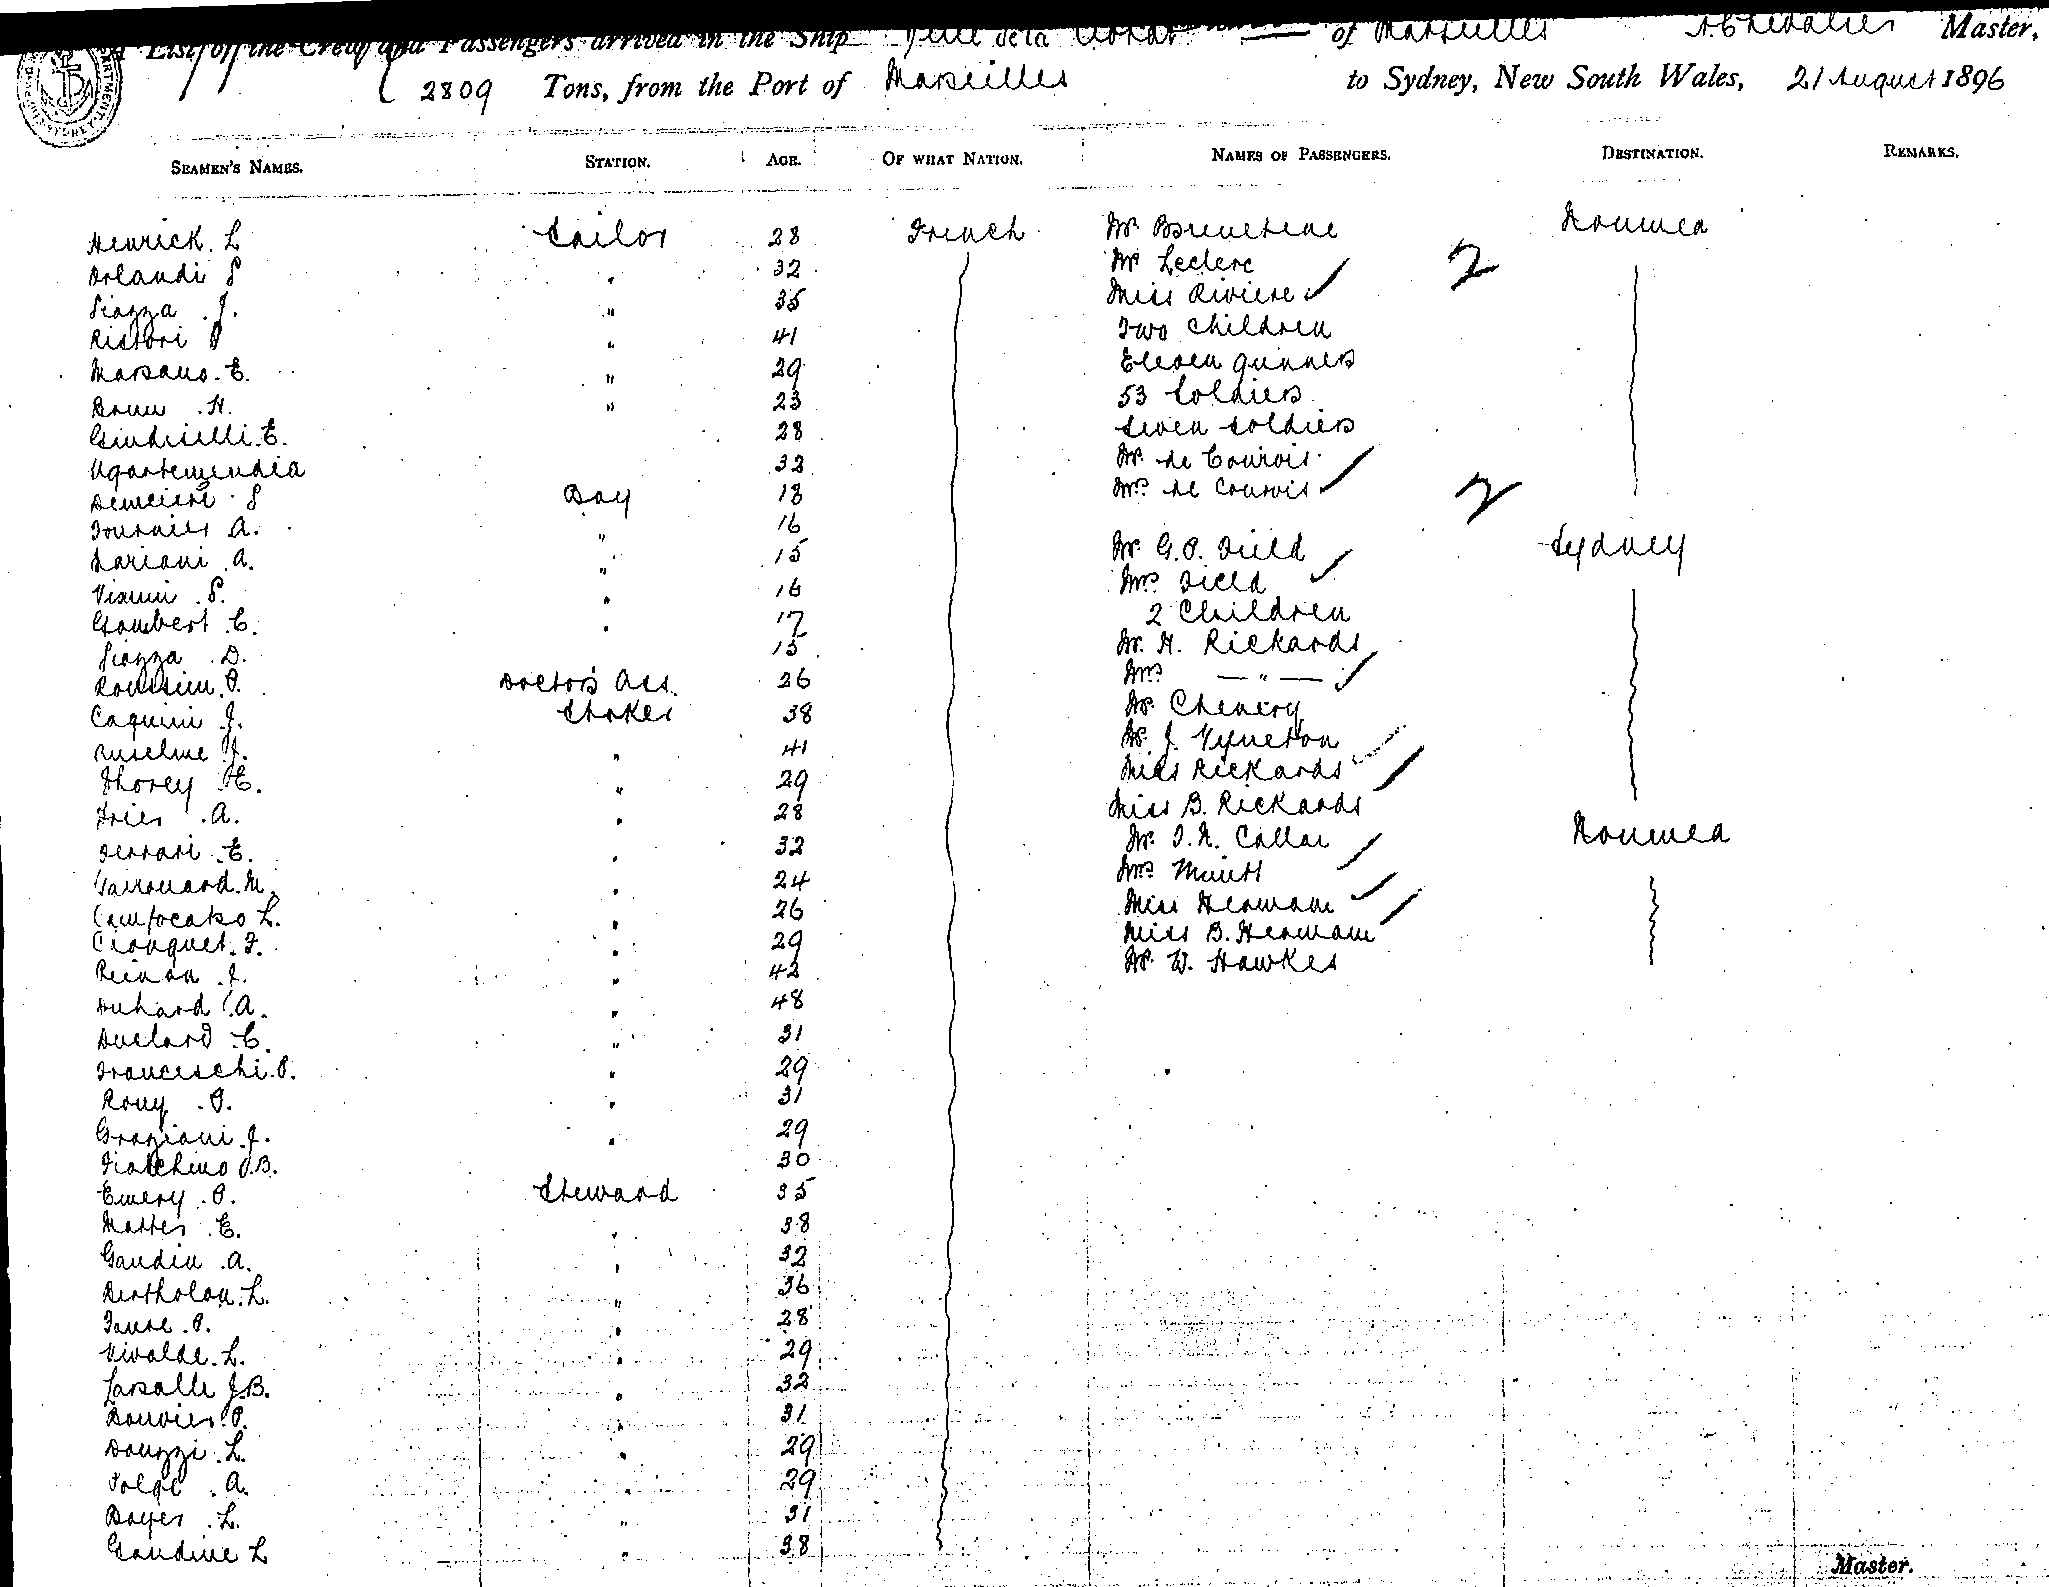 List of the Crew and Passengers arrived in the Ship Ville de la Ciotat of Marseilles A. Chevalier Master,
2809 Tons, from the Port of Marseilles to Sydney, New South Wales, 21 August 1896
SEAMEN'S NAMES. STATION. AGE. OF WHAT NATION. NAMES OF PASSENGERS. DESTINATION. REMARKS.
Henrick. L Sailor 28 French Mr Noumea
Orlandi P " 32 Mr Leclerc 2
Piazza . J. " 35 Miss Riviere
Ristori P " 41 Two Children
Marsano. E. " 29 Eleven gunners
Brun . H. " 23 53 Soldiers
Giudicelli. E. 28 Seven soldiers
Ugartemendia 32 Mr. de Courvis
P Boy 18 Mrs de Courvis 2
Fournier A. " 16
Mariani . A. " 15 Mr. G. P. Field Sydney
Vianni . P. " 16 Mrs Field
Gombert . C. " 17 2 Children
Piazza . D. 15 Mr. H. Rickards
Roussin. P. Doctor's Ass. 26 Mrs — " —
Caquini . J. Stoker 38 Mr Chenery
J. " 41 Mr. J.
Thorey . H. " 29 Miss Rickards
Fries . A. " 28 Miss B. Rickards
Ferrari . E. " 32 Mr. Noumea
M. " 24 Mrs
Campocasso L. " 26 Miss Hermann
F. " 29 Miss B. Hermann
J. " 42 Mr. W. Hawkes
Duhard . A. " 48
C. " 31
Franceschi. P. " 29
Rouy . P. " 31
Graziani . J. " 29
J.B. " 30
Emery . P. Steward 35
Mattei . E. " 38
Gaudin . A. " 32
Bertholon. L. " 36
Faure . P. " 28
Vivalde. L. " 29
Lasalle J.B. " 32
Bouvier. P. " 31
Douzzi . L. " 29
A. " 29
Boyer . L. " 31
Gaudine L " 38
Master.